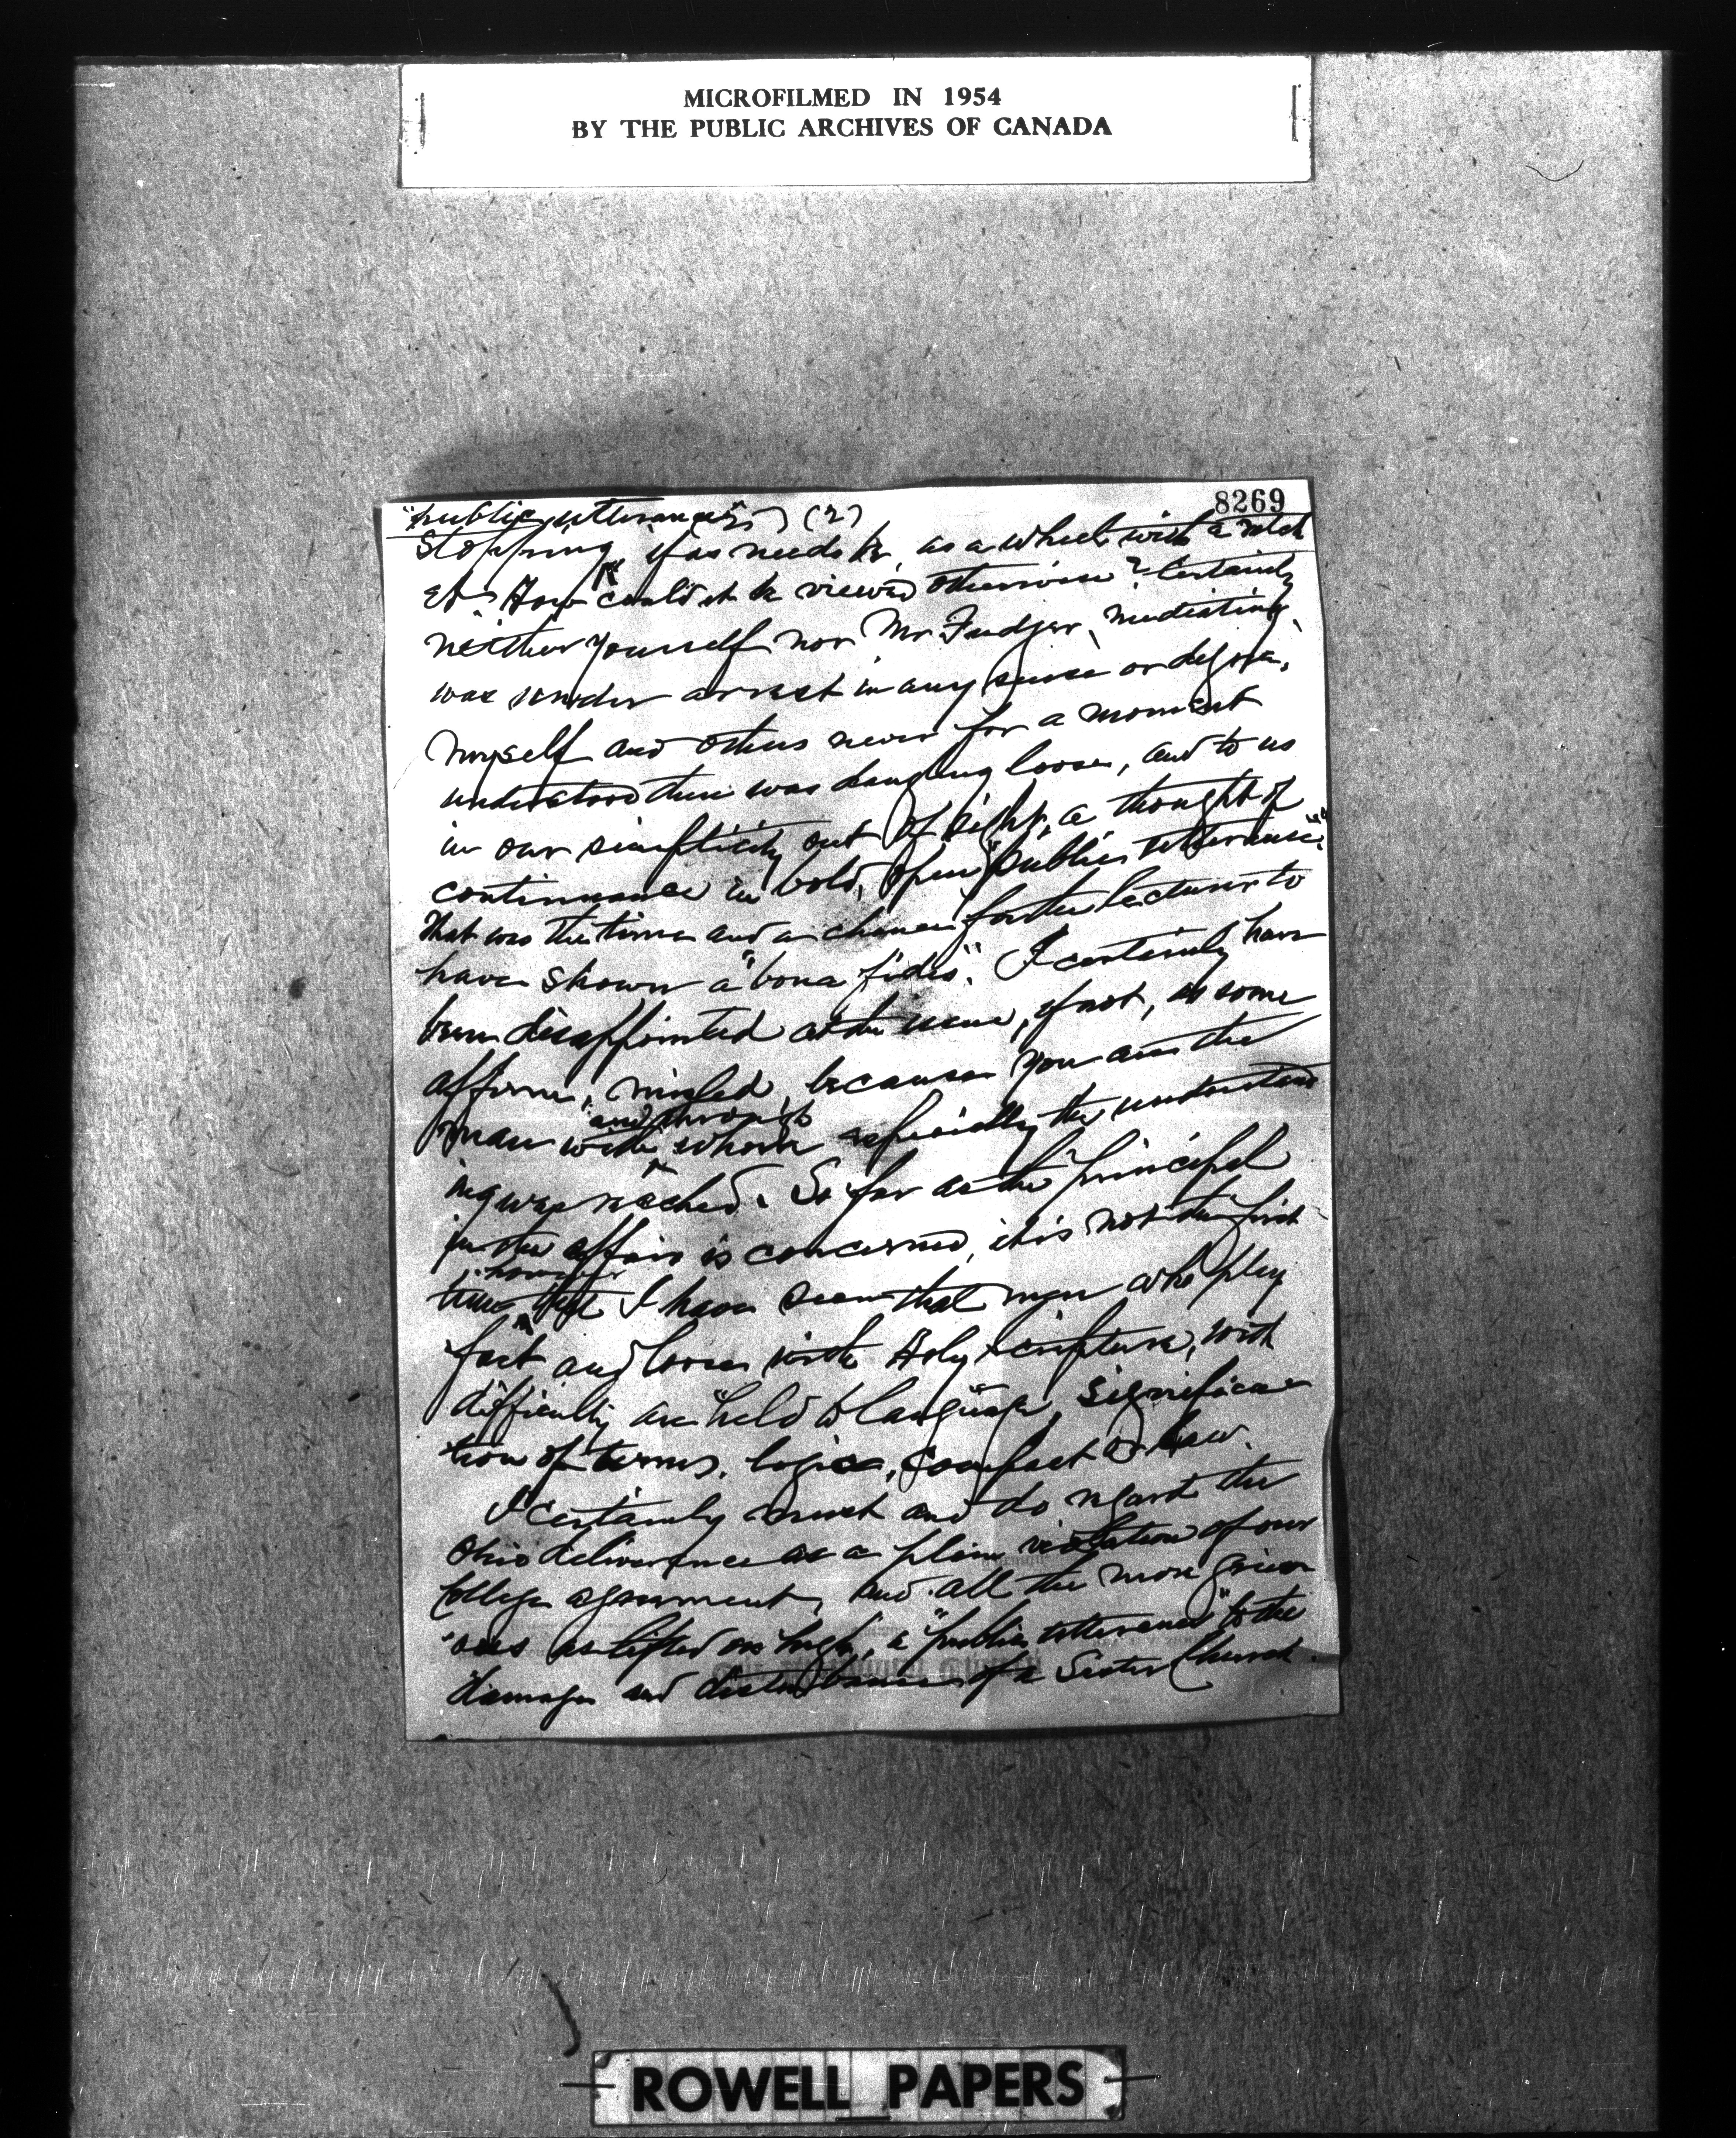 MICROFILMED IN 1954
BY THE PUBLIC ARCHIVES OF CANADA
8269
"public utterances") (2)
stopping, if as needs be, as a wheel with a ratch
et. How could it be viewed otherwise? Certainly
neither yourself nor Mr Fudger, mediating,
was under arrest in any sense or degree.
Myself and others never for a moment
understood there was hanging loose, and to us
in our simplicity out of sight, a thought of
continuance in bold, open "public utterance".
That was the time and a chance for the lecturer to
have shown a "bona fides". I certainly have
been disappointed at the issue, if not, as some
affirm, misled, because you are the
man with and through whom especially the understand
ing was reached. So far as the principal
in the affair is concerned, it is not the first
time however that I have seen that men who play
fast and loose with Holy Scripture, with
difficulty are "held to language", significa
tion of terms, logic, compact or law.
I certainly must and do regard the
Ohio deliverance as a plain violation of our
College agreement, and all the more griev
ous as lifted on high, a "public utterance" to the
damage and disturbance of a Sister Church.
ROWELL PAPERS